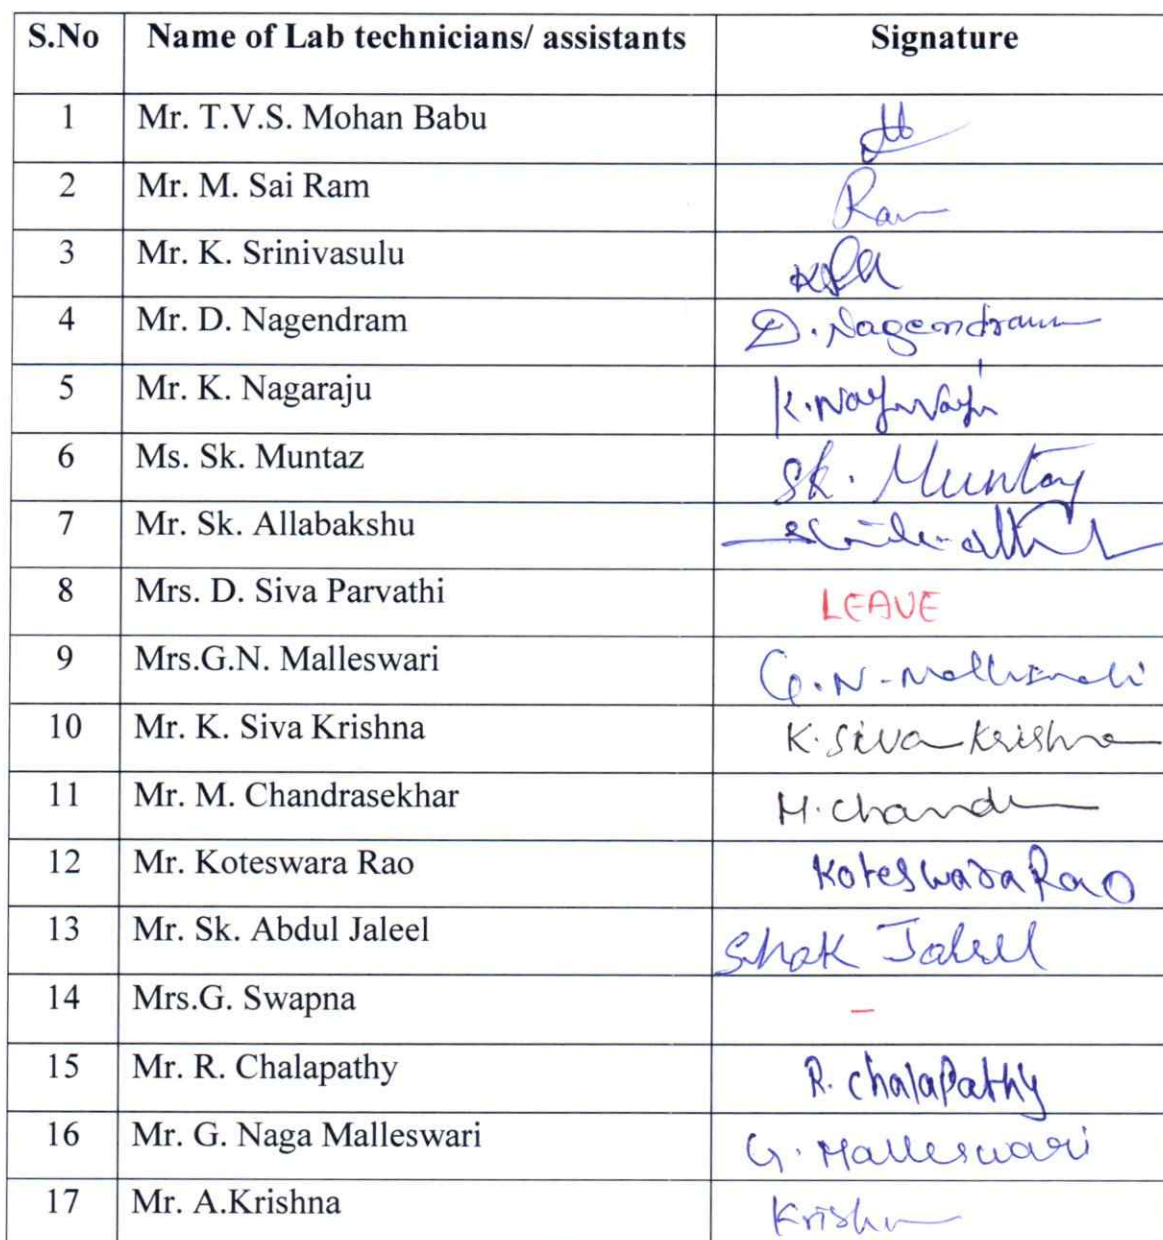 S.No Name of Lab technicians/ assistants Signature
1 Mr. T.V.S. Mohan Babu
2 Mr. M. Sai Ram Ram
3 Mr. K. Srinivasulu
4 Mr. D. Nagendram D. Nagendram
5 Mr. K. Nagaraju K. Nagaraju
6 Ms. Sk. Muntaz Sk. Muntaz
7 Mr. Sk. Allabakshu
8 Mrs. D. Siva Parvathi LEAVE
9 Mrs.G.N. Malleswari G.N.
10 Mr. K. Siva Krishna K. Siva Krishna
11 Mr. M. Chandrasekhar M. Chand
12 Mr. Koteswara Rao Koteswara Rao
13 Mr. Sk. Abdul Jaleel Shak Jaleel
14 Mrs.G. Swapna -
15 Mr. R. Chalapathy R. ChalaPathy
16 Mr. G. Naga Malleswari G. Malleswari
17 Mr. A.Krishna Krishn